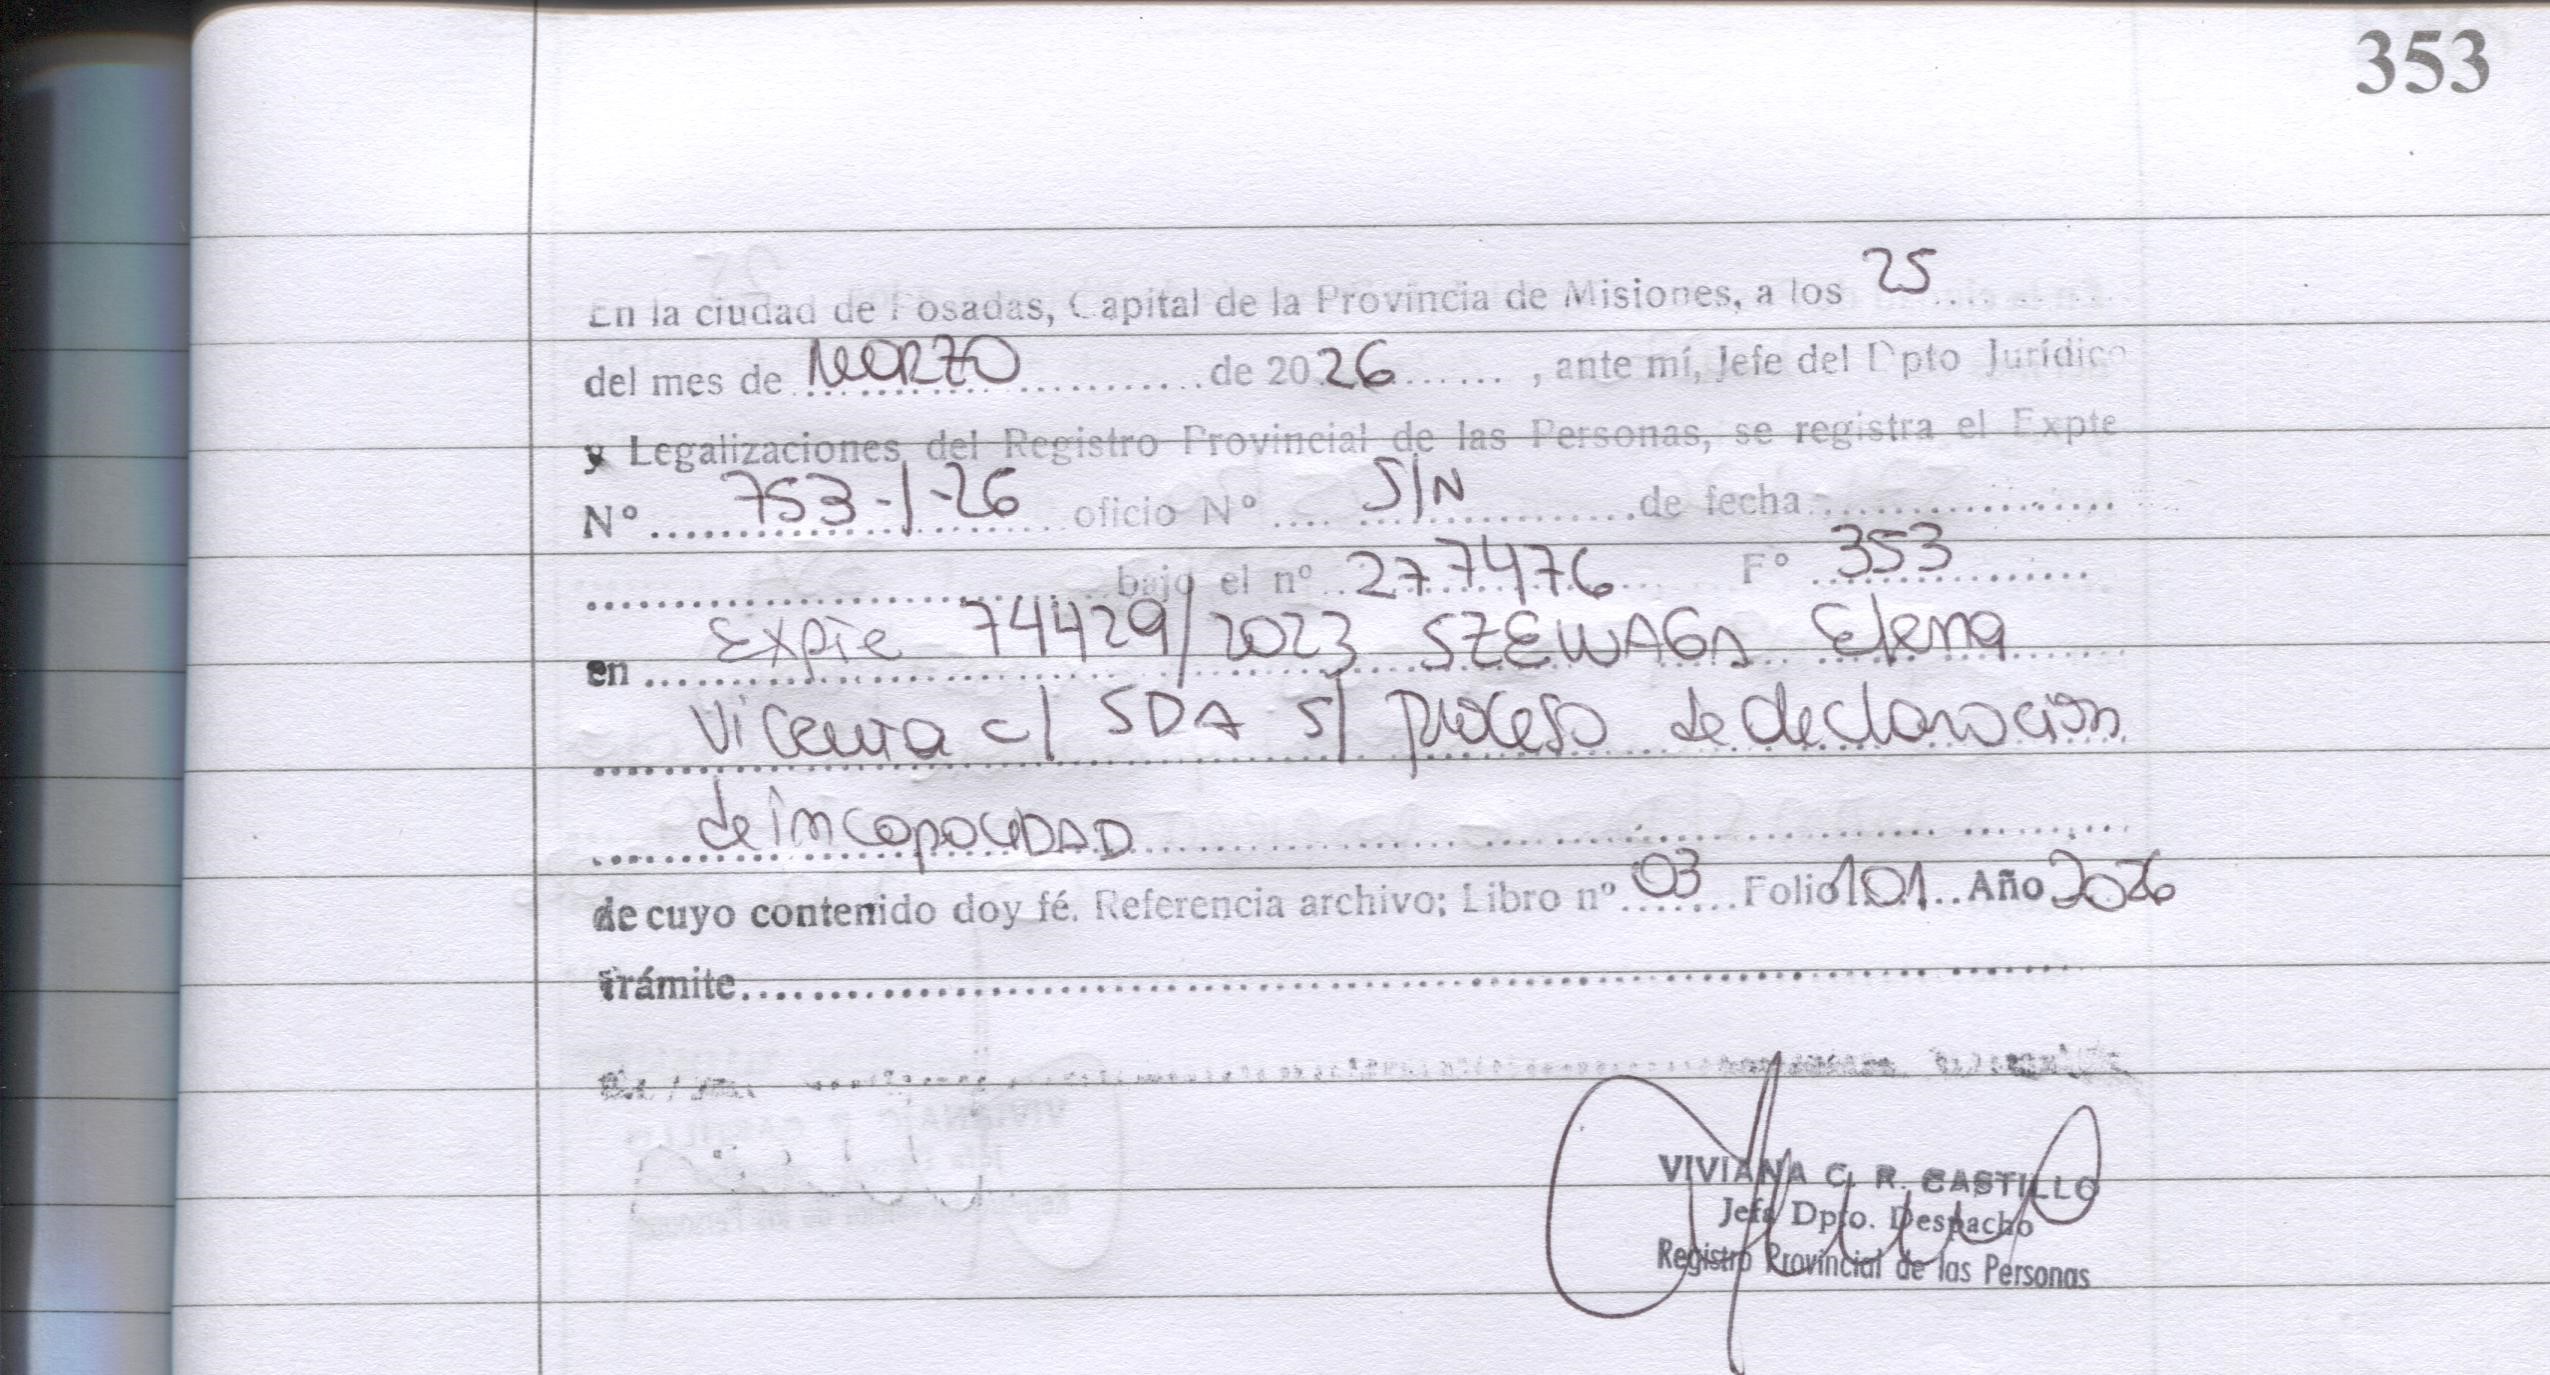 353
En la ciudad de Posadas, Capital de la Provincia de Misiones, a los 25
del mes de MARZO de 2026, ante mí, Jefe del Dpto Jurídico
y Legalizaciones del Registro Provincial de las Personas, se registra el Expte
N° 753-1-26 oficio N° S/N de fecha
bajo el n° 277476 F° 353
en Expte 74429/2023 SZEWAGA Elena
Vicenta c/ SDA s/ proceso de declaración
de incapacidad
de cuyo contenido doy fé. Referencia archivo; Libro n° 03 Folio 101 Año 2026
Trámite
VIVIANA C. R. CASTILLO
Jefa Dpto. Despacho
Registro Provincial de las Personas